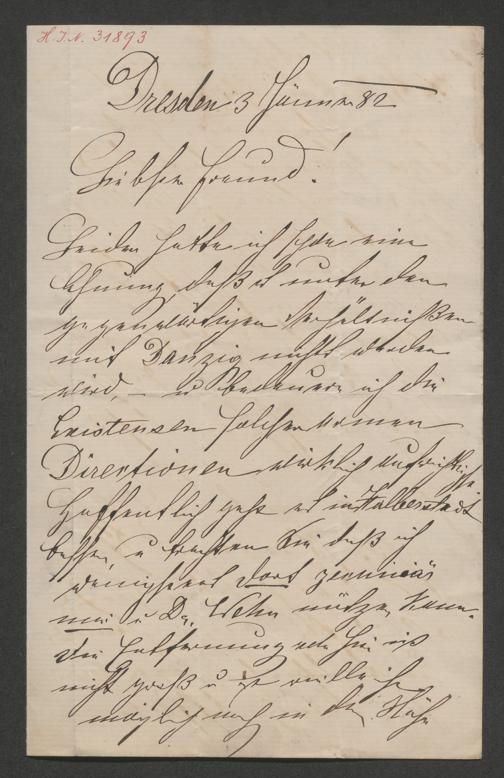 H.I.N. 31893
Dresden 3 Jänner 82
Liebster Freund!
Leider hatte ich schon eine
Ahnung, daß es unter den
gegenwärtigen Verhältnißen
mit Danzig nichts werden
wird, – u bedauere ich die
Existenzen solcher armen
Directionen wirklich aufrichtig
Hoffentlich geht es in Halberstadt
besser, u trachten Sie daß ich
wenigstens dort
u Dr. nützen kann.
Die Entfernung von hier ist
nicht groß u ist vielleicht
möglich noch in der Nähe